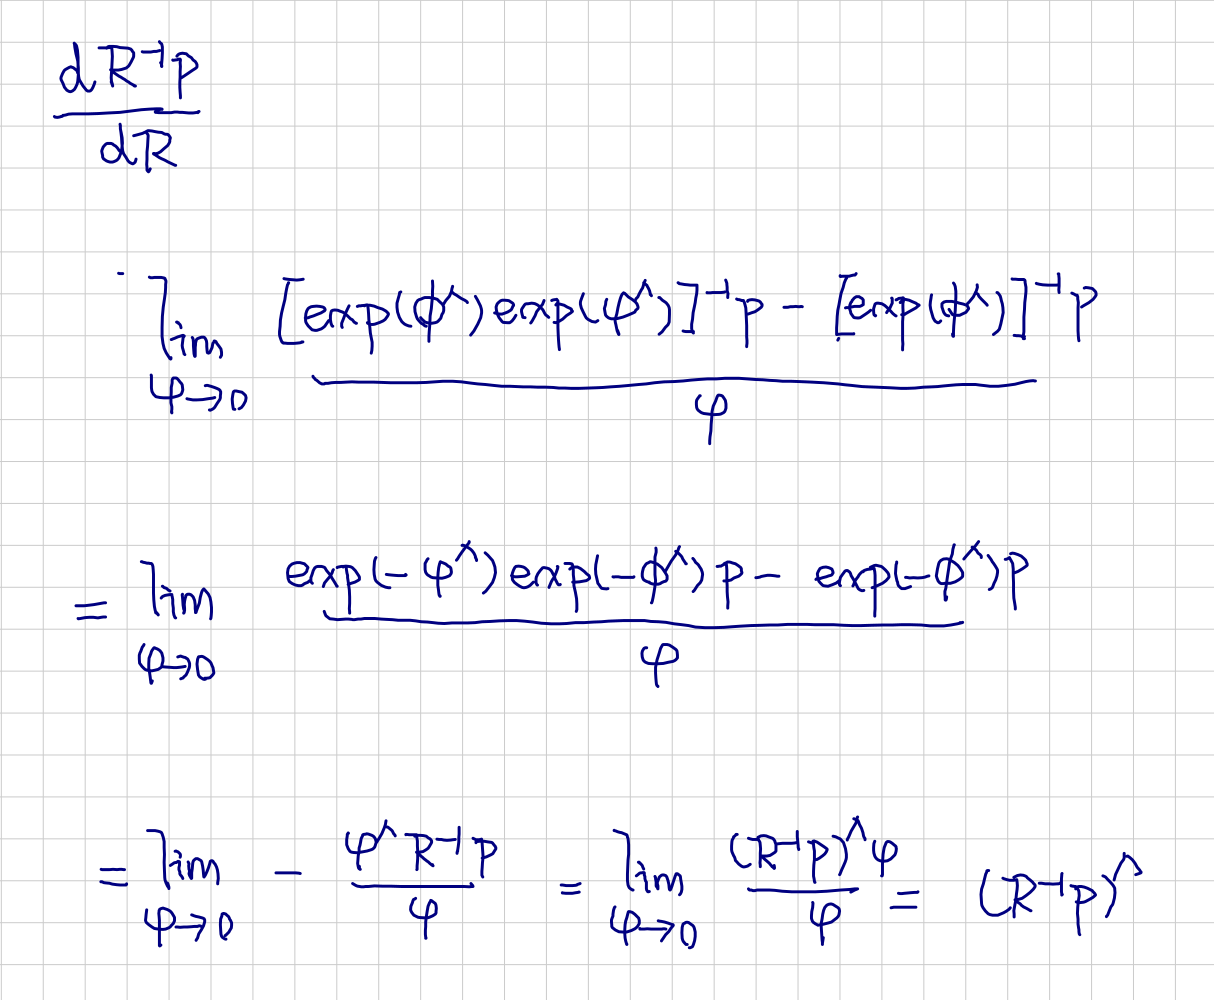 dR⁻¹p / dR
lim φ→0 ([exp(ϕ^)exp(φ^)]⁻¹p − [exp(ϕ^)]⁻¹p) / φ
= lim φ→0 (exp(−φ^)exp(−ϕ^)p − exp(−ϕ^)p) / φ
= lim φ→0 − (φ^R⁻¹p) / φ = lim φ→0 ((R⁻¹p)^φ) / φ = (R⁻¹p)^